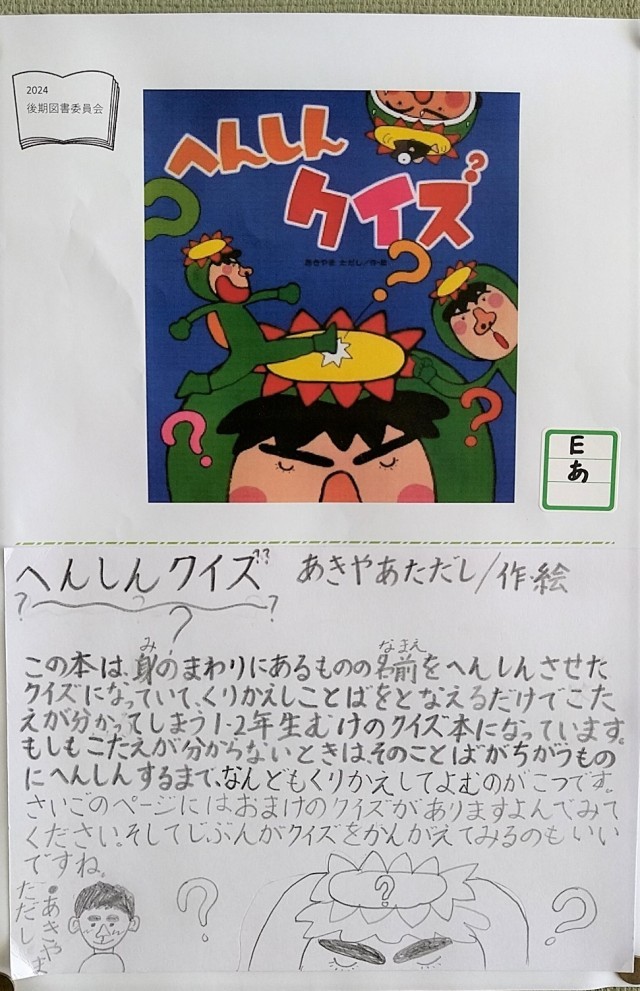 2024
後期図書委員会
へんしん
クイズ
あきやま ただし/作・絵
E
あ
へんしんクイズ?? あきやあただし/作・絵
? ? ?
この本は、身のまわりにあるものの名前をへんしんさせた
み なまえ
クイズになっていて、くりかえしことばをとなえるだけでこた
えが分かってしまう1-2年生むけのクイズ本になっています。
もしもこたえが分からないときは、そのことばがちがうもの
にへんしんするまで、なんどもくりかえしてよむのがこつです。
さいごのページにはおまけのクイズがありますよんでみて
ください。そしてじぶんがクイズをかんがえてみるのもいい
ですね。
•あきやま
ただし
? ? ?